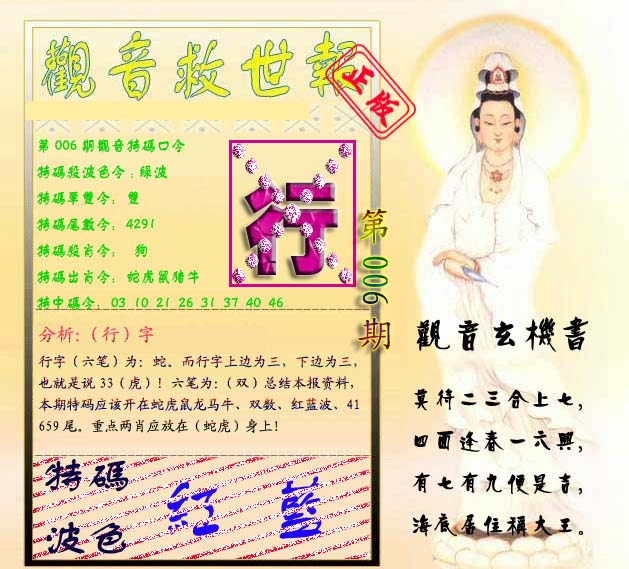 觀音救世報
正版
第006期觀音特碼口令
特碼殺波色令:綠波
特碼單雙令: 雙
特碼尾數令: 4291
特碼殺肖令: 狗
特碼出肖令: 蛇虎鼠猪牛
特中碼令: 03 10 21 26 31 37 40 46
行
第006期
分析:（行）字
行字（六笔）为：蛇。而行字上边为三，下边为三，
也就是说 33（虎）！六笔为：（双）总结本报资料，
本期特码应该开在蛇虎鼠龙马牛、双数、红蓝波、41
659 尾。重点两肖应放在（蛇虎）身上！
特碼
波色
紅 藍
觀音玄機書
莫待二三合上七，
四面逢春一六興，
有七有九便是吉，
海底居住稱大王。